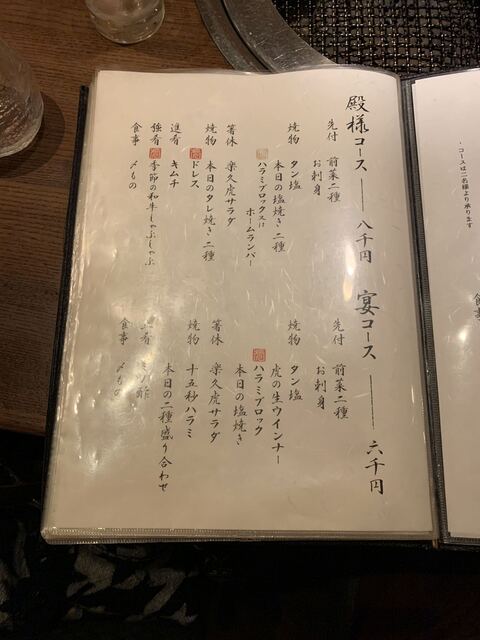 殿様コース ── 八千円
先付 前菜二種
お刺身
焼物 タン塩
本日の塩焼き二種
ハラミブロックスは
ホームランバー
箸休 楽久虎サラダ
焼物 本日のタレ焼き二種
ドレス
進肴 キムチ
強肴 季節の和牛しゃぶしゃぶ
食事 〆もの
宴コース ── 六千円
先付 前菜二種
お刺身
焼物 タン塩
虎の生ウインナー
ハラミブロック
本日の塩焼き
箸休 楽久虎サラダ
焼物 十五秒ハラミ
本日の二種盛り合わせ
肴 ミノ酢
食事 〆もの
・コースは二名様より承ります